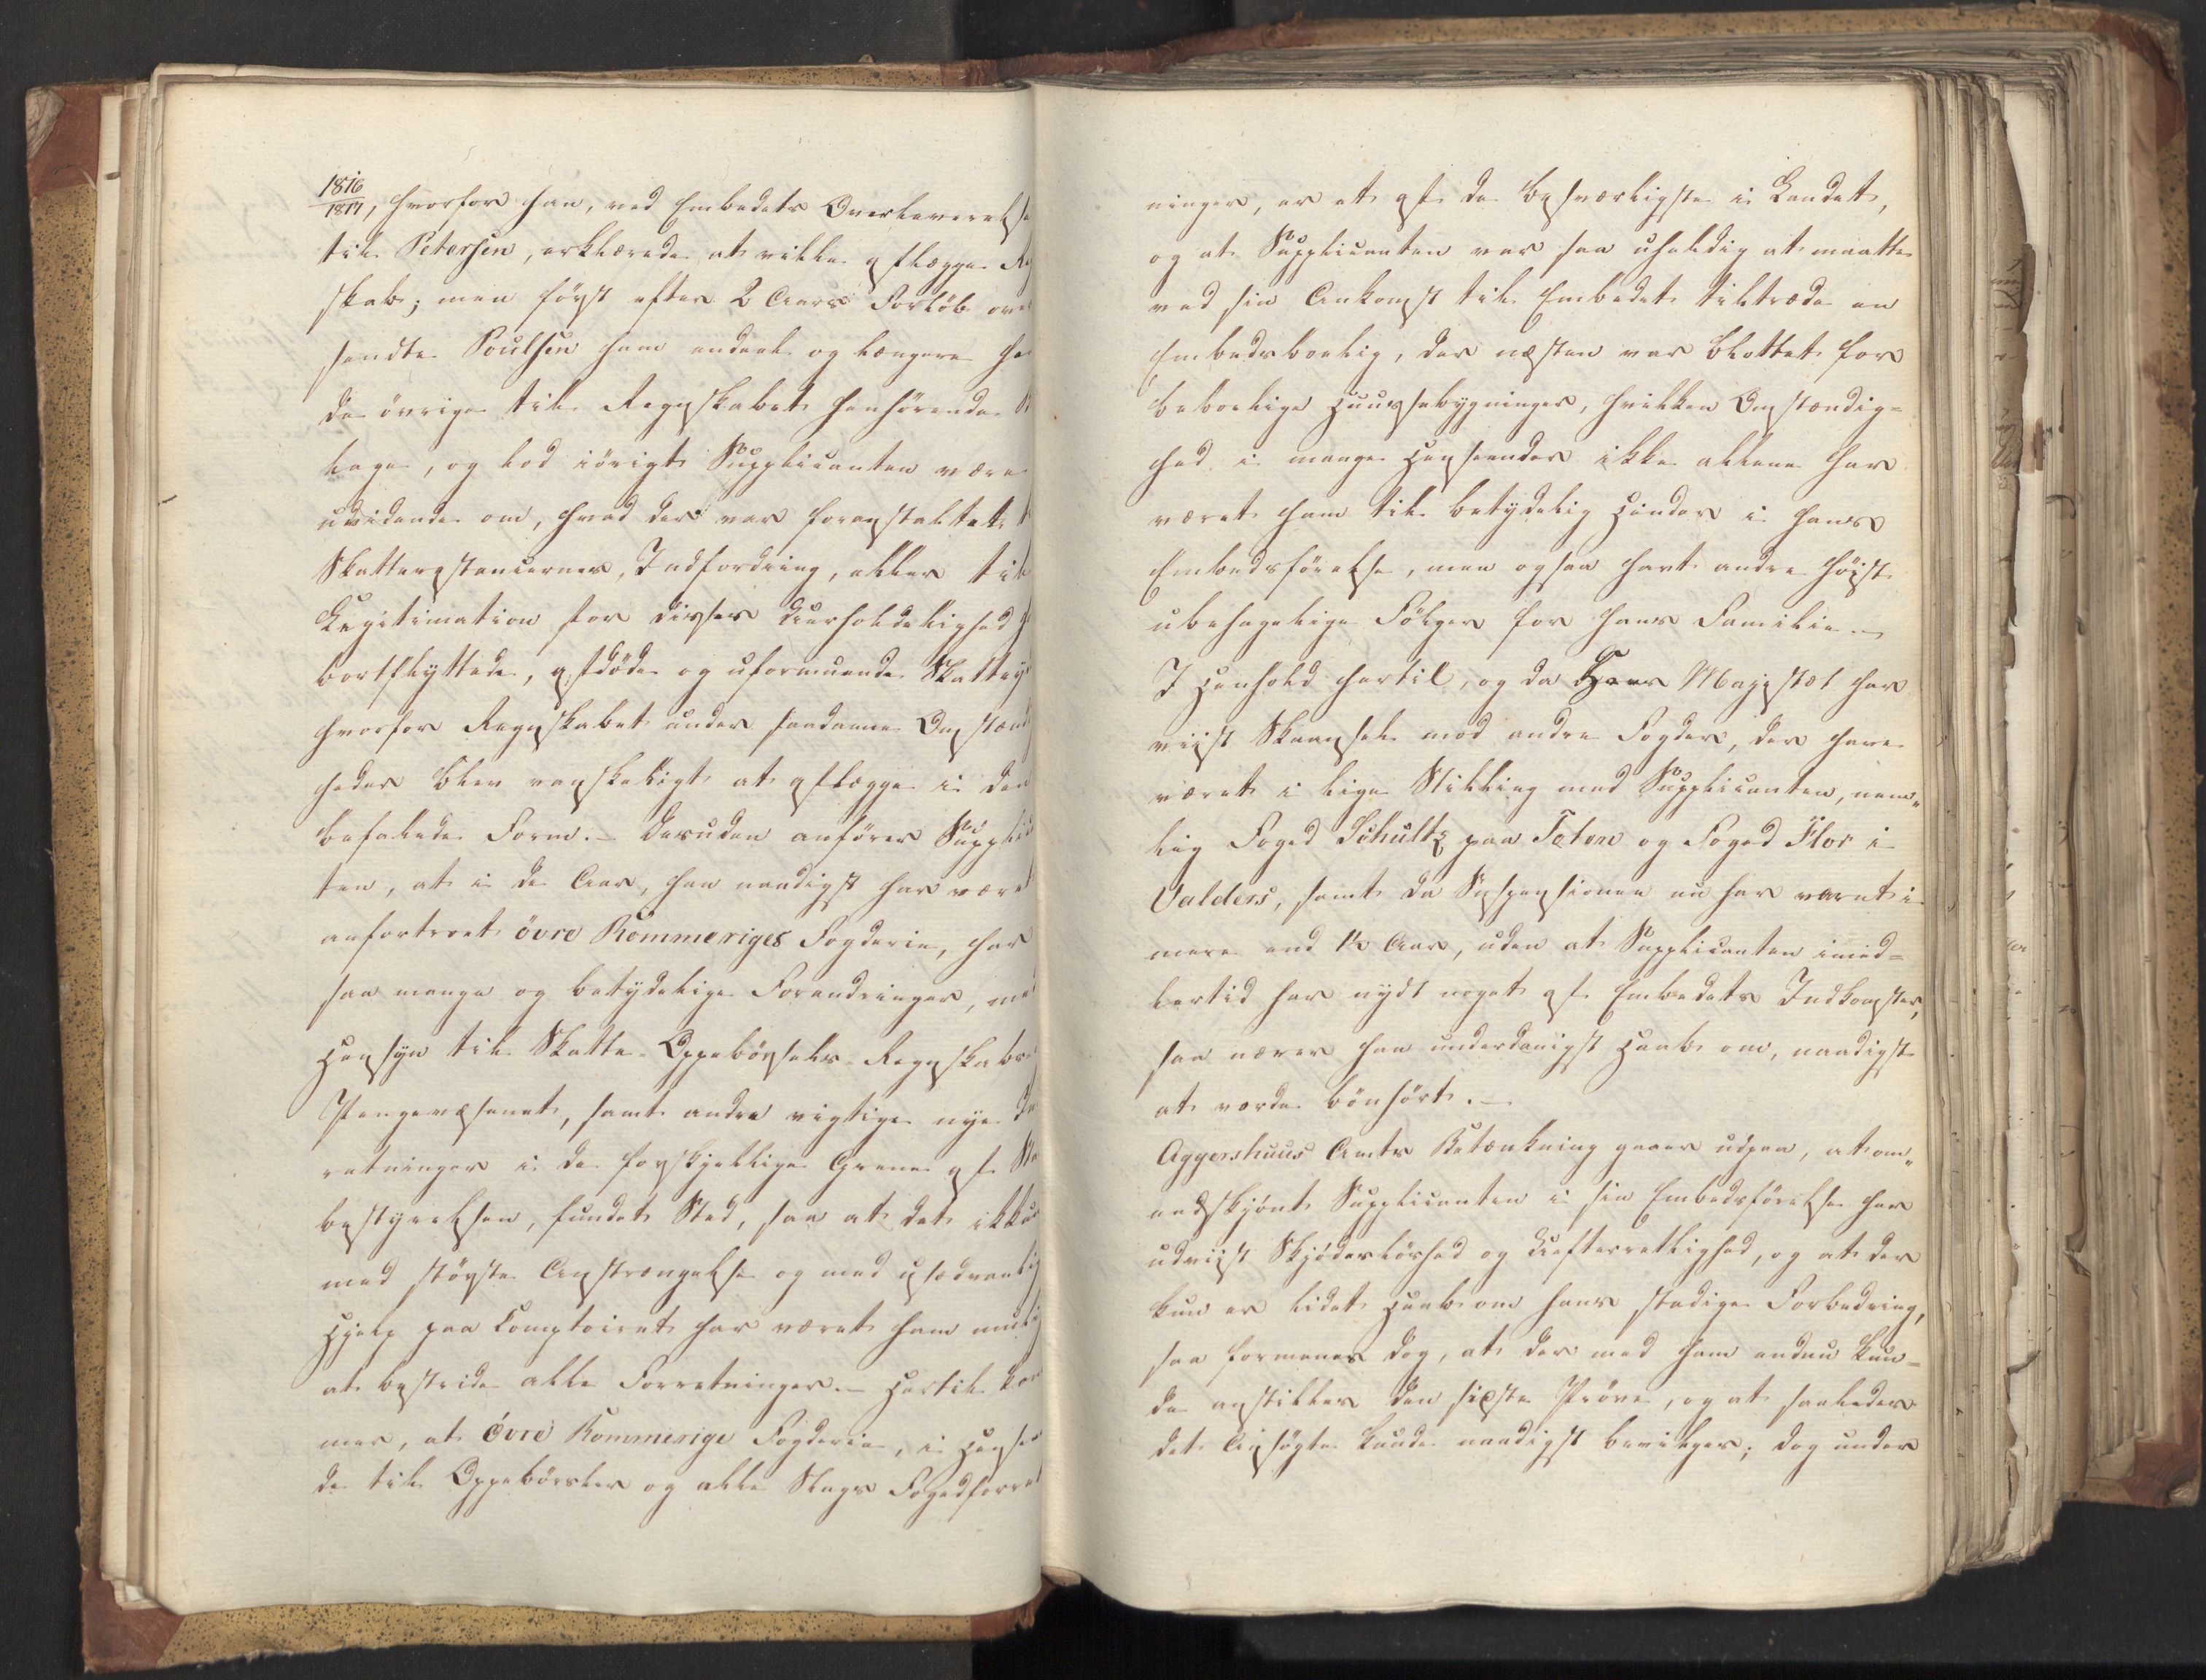 1816
1817, hvorfor han, ved Embedets Overleverelse
til Petersen, erklærede at ville aflægge Reg
skab; men først efter 2 Aars Forløb over
sendte Poulsen ham endeel og længere hen
de övrige til Regnskabet henhörende Bi
lage, og lod iövrigt Supplicanten være
uvidende om, hvad der var foranstaltet t
Skatterestancernes Inddrivelse, eller til
Legitimation for disses Uerholdelighed h
bortflyttede, afdöde og uformuende Skattey
hvorfor Regnskabet under saadanne Omstænd
heder blev vanskeligt at aflægge i den
befalede Form. – Desuden anförer Supplic
ten, at i de Aar, han naadigst har været
anfortroet övre Rommeriges Fogderie, har
saa mange og betydelige Forandringer, me
Hensyn til Skatte-Oppebörsels-Regnskabs-
Pengevæsenet, samt andre vigtige nye
retninger i de forskjellige Grene af Sta
bestyrelsen, fundet Sted, saa at det ikkun
med störste Anstrængelse og med usædvanlig
Hjelp paa Comptoiret har været ham muli
at bestride alle Forretninger. – Hertil kom
mer, at övre Rommerige Fogderie, i Hensee
de til Oppebörsler og alle Slags Fogedforret
ninger, er et af de besværligste i Landet,
og at Supplicanten var saa uheldig at maatte
ved sin Ankomst til Embedet tiltræde en
Embedsbolig, der næsten var blottet for
beboelige Huusebygninger, hvilken Omstændig=
hed i mange Henseender ikke allene har
været ham til betydelig Hinder i hans
Embedsförelse, men ogsaa havt andre höist
ubehagelige Fölger for hans Familie. –
I Henhold hertil, og da Hans Majestæt har
viist Skaansel mod andre Fogder, der have
været i lige Stilling med Supplicanten, nem„
lig Foged Schultz paa Toten og Foged Flor i
Valders, samt da Suspensionen nu har varet i
mere end 1½ Aar, uden at Supplicanten imid=
lertid har nydt noget af Embedets Indkomster,
saa nærer han underdanigst Haab om, naadigst
at vorde bönhört. –
Aggershuus Amts Betænkning gaaer udpaa, at om„
endskjönt Supplicanten i sin Embedsförelse har
udviist Skjödeslöshed og Uefterretlighed, og at der
kun er lidet Haab om hans stadige Forbedring,
saa formenes dog, at der med ham endnu kun=
de anstilles den sidste Pröve, og at saaledes
det Ansögte kunde naadigst bevilges; dog under